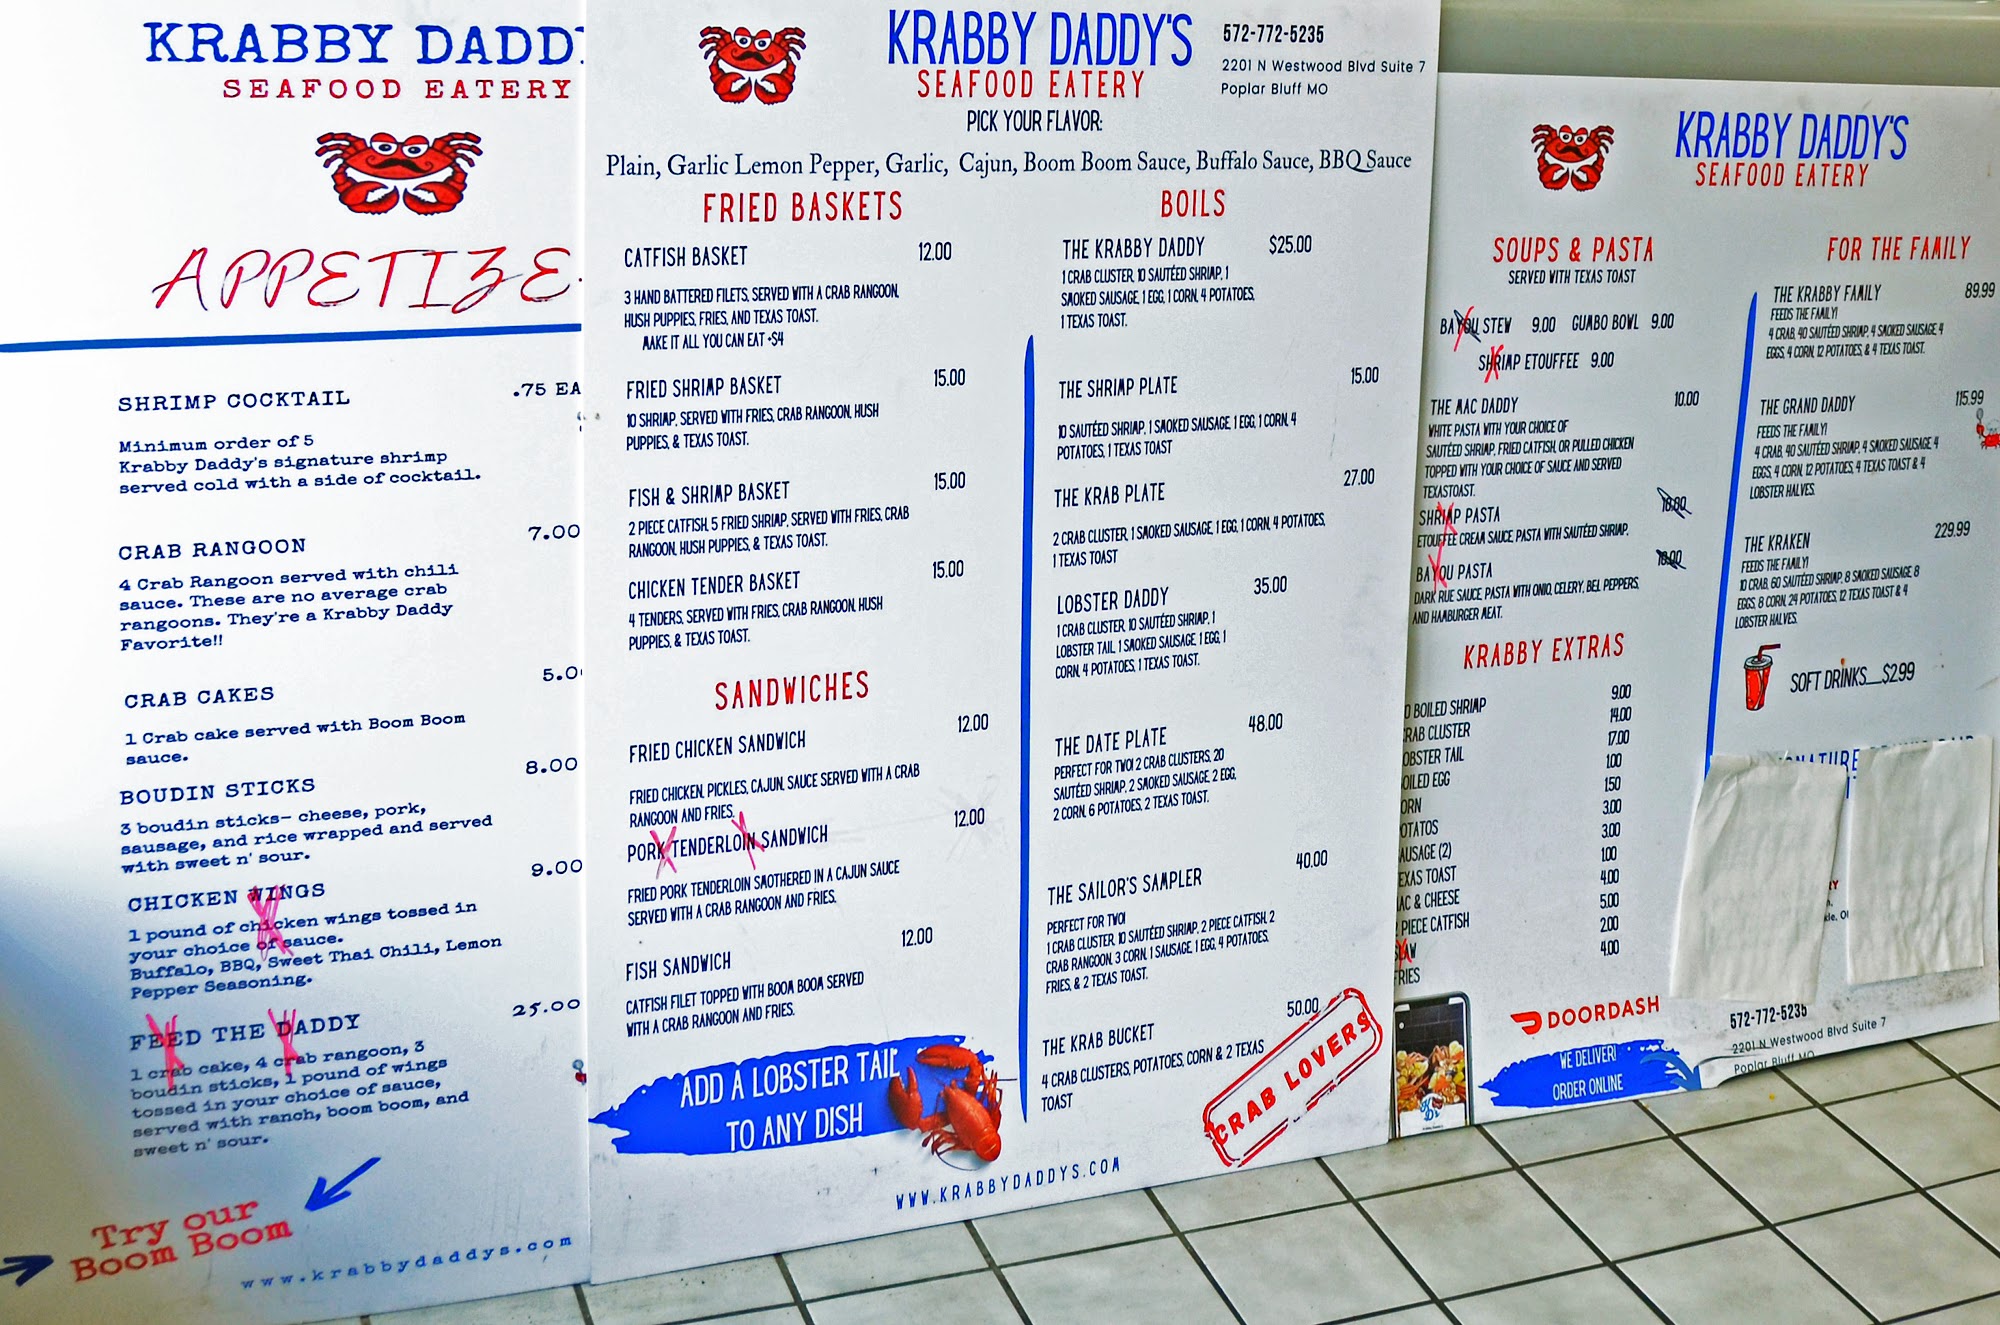 KRABBY DADD
SEAFOOD EATERY
APPETIZE
SHRIMP COCKTAIL .75 EA
Minimum order of 5
Krabby Daddy's signature shrimp
served cold with a side of cocktail.
CRAB RANGOON 7.00
4 Crab Rangoon served with chili
sauce. These are no average crab
rangoons. They're a Krabby Daddy
Favorite!!
CRAB CAKES 5.0
1 Crab cake served with Boom Boom
sauce.
BOUDIN STICKS 8.00
3 boudin sticks- cheese, pork,
sausage, and rice wrapped and served
with sweet n' sour.
CHICKEN WINGS 9.00
1 pound of chicken wings tossed in
your choice of sauce.
Buffalo, BBQ, Sweet Thai Chili, Lemon
Pepper Seasoning.
FEED THE DADDY 25.00
1 crab cake, 4 crab rangoon, 3
boudin sticks, 1 pound of wings
tossed in your choice of sauce,
served with ranch, boom boom, and
sweet n' sour.
Try our
Boom Boom
www.krabbydaddys.com
KRABBY DADDY'S
SEAFOOD EATERY
572-772-5235
2201 N Westwood Blvd Suite 7
Poplar Bluff MO
PICK YOUR FLAVOR:
Plain, Garlic Lemon Pepper, Garlic, Cajun, Boom Boom Sauce, Buffalo Sauce, BBQ Sauce
FRIED BASKETS
CATFISH BASKET 12.00
3 HAND BATTERED FILETS, SERVED WITH A CRAB RANGOON,
HUSH PUPPIES, FRIES, AND TEXAS TOAST.
MAKE IT ALL YOU CAN EAT +$4
FRIED SHRIMP BASKET 15.00
10 SHRIMP, SERVED WITH FRIES, CRAB RANGOON, HUSH
PUPPIES, & TEXAS TOAST.
FISH & SHRIMP BASKET 15.00
2 PIECE CATFISH, 5 FRIED SHRIMP, SERVED WITH FRIES, CRAB
RANGOON, HUSH PUPPIES, & TEXAS TOAST.
CHICKEN TENDER BASKET 15.00
4 TENDERS, SERVED WITH FRIES, CRAB RANGOON, HUSH
PUPPIES, & TEXAS TOAST.
SANDWICHES
FRIED CHICKEN SANDWICH 12.00
FRIED CHICKEN, PICKLES, CAJUN, SAUCE SERVED WITH A CRAB
RANGOON AND FRIES.
PORK TENDERLOIN SANDWICH 12.00
FRIED PORK TENDERLOIN SMOTHERED IN A CAJUN SAUCE
SERVED WITH A CRAB RANGOON AND FRIES.
FISH SANDWICH 12.00
CATFISH FILET TOPPED WITH BOOM BOOM SERVED
WITH A CRAB RANGOON AND FRIES.
ADD A LOBSTER TAIL
TO ANY DISH
BOILS
THE KRABBY DADDY $25.00
1 CRAB CLUSTER, 10 SAUTÉED SHRIMP, 1
SMOKED SAUSAGE, 1 EGG, 1 CORN, 4 POTATOES,
1 TEXAS TOAST.
THE SHRIMP PLATE 15.00
10 SAUTÉED SHRIMP, 1 SMOKED SAUSAGE, 1 EGG, 1 CORN, 4
POTATOES, 1 TEXAS TOAST
THE KRAB PLATE 27.00
2 CRAB CLUSTER, 1 SMOKED SAUSAGE, 1 EGG, 1 CORN, 4 POTATOES,
1 TEXAS TOAST
LOBSTER DADDY 35.00
1 CRAB CLUSTER, 10 SAUTÉED SHRIMP, 1
LOBSTER TAIL, 1 SMOKED SAUSAGE, 1 EGG, 1
CORN, 4 POTATOES, 1 TEXAS TOAST.
THE DATE PLATE 48.00
PERFECT FOR TWO! 2 CRAB CLUSTERS, 20
SAUTÉED SHRIMP, 2 SMOKED SAUSAGE, 2 EGG,
2 CORN, 6 POTATOES, 2 TEXAS TOAST.
THE SAILOR'S SAMPLER 40.00
PERFECT FOR TWO!
1 CRAB CLUSTER, 10 SAUTÉED SHRIMP, 2 PIECE CATFISH, 2
CRAB RANGOON, 3 CORN, 1 SAUSAGE, 1 EGG, 4 POTATOES,
FRIES, & 2 TEXAS TOAST.
THE KRAB BUCKET 50.00
4 CRAB CLUSTERS, POTATOES, CORN & 2 TEXAS
TOAST
CRAB LOVERS
WWW.KRABBYDADDYS.COM
KRABBY DADDY'S
SEAFOOD EATERY
SOUPS & PASTA
SERVED WITH TEXAS TOAST
BAYOU STEW 9.00 GUMBO BOWL 9.00
SHRIMP ETOUFFEE 9.00
THE MAC DADDY 10.00
WHITE PASTA WITH YOUR CHOICE OF
SAUTÉED SHRIMP, FRIED CATFISH, OR PULLED CHICKEN
TOPPED WITH YOUR CHOICE OF SAUCE AND SERVED
TEXASTOAST.
SHRIMP PASTA 10.00
ETOUFFEE CREAM SAUCE, PASTA WITH SAUTÉED SHRIMP.
BAYOU PASTA 10.00
DARK RUE SAUCE, PASTA WITH ONIO, CELERY, BEL PEPPERS,
AND HAMBURGER MEAT.
KRABBY EXTRAS
0 BOILED SHRIMP 9.00
RAB CLUSTER 14.00
OBSTER TAIL 17.00
OILED EGG 1.00
ORN 1.50
OTATOS 3.00
AUSAGE (2) 3.00
EXAS TOAST 1.00
AC & CHEESE 4.00
PIECE CATFISH 5.00
SLAW 2.00
FRIES 4.00
DOORDASH
WE DELIVER!
ORDER ONLINE
FOR THE FAMILY
THE KRABBY FAMILY 89.99
FEEDS THE FAMILY!
4 CRAB, 40 SAUTÉED SHRIMP, 4 SMOKED SAUSAGE, 4
EGGS, 4 CORN, 12 POTATOES, & 4 TEXAS TOAST.
THE GRAND DADDY 115.99
FEEDS THE FAMILY!
4 CRAB, 40 SAUTÉED SHRIMP, 4 SMOKED SAUSAGE, 4
EGGS, 4 CORN, 12 POTATOES, 4 TEXAS TOAST & 4
LOBSTER HALVES.
THE KRAKEN 229.99
FEEDS THE FAMILY!
10 CRAB, 60 SAUTÉED SHRIMP, 8 SMOKED SAUSAGE, 8
EGGS, 8 CORN, 24 POTATOES, 12 TEXAS TOAST & 4
LOBSTER HALVES.
SOFT DRINKS__$2.99
NATURE
572-772-5235
2201 N Westwood Blvd Suite 7
Poplar Bluff MO